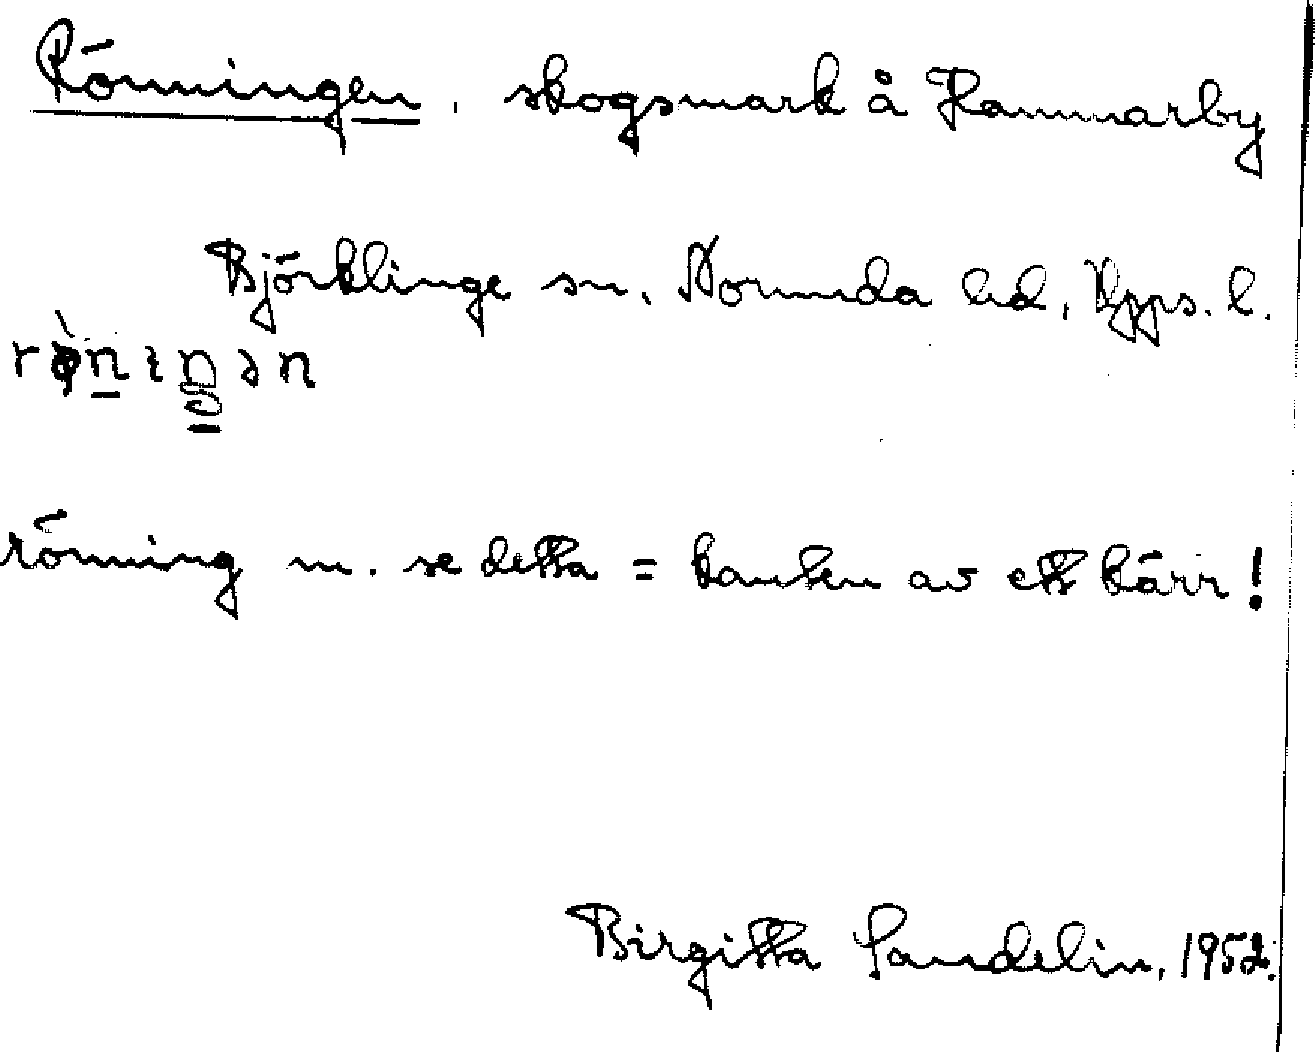 Rönningen, skogsmark å Hammarby
Björklinge sn, Norunda hd, Upps. l.
rönıŋən
rönning m. se detta = kanten av ett kärr!
Birgitta Sandelin, 1952.